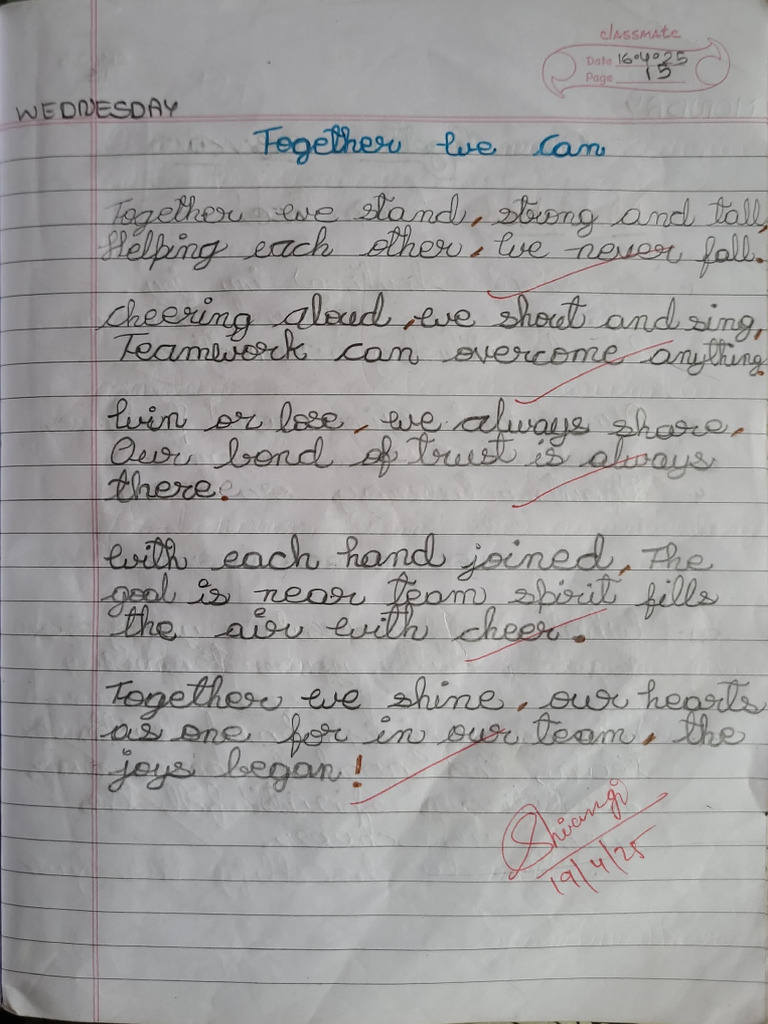 classmate
Date 16.4.25
Page 15
WEDNESDAY
Together we can
Together we stand, strong and tall,
Helping each other, we never fall.
cheering aloud, we shout and sing,
Teamwork can overcome anything.
Win or lose, we always share,
Our bond of trust is always
there.
With each hand joined, The
goal is near team spirit fills
the air with cheer.
Together we shine, our hearts
as one for in our team, the
joys began!
Shivangi
19/4/25